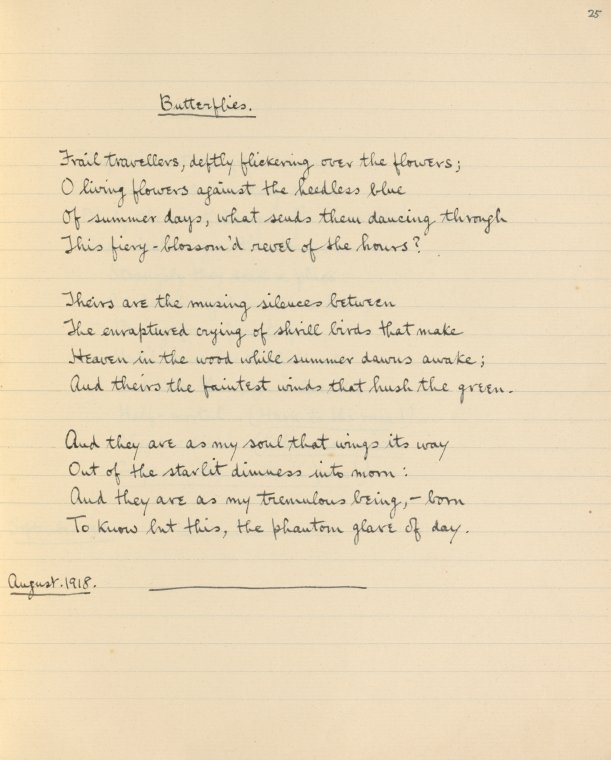 25
Butterflies.
Frail travellers, deftly flickering over the flowers;
O living flowers against the heedless blue
Of summer days, what sends them dancing through
This fiery-blossom'd revel of the hours?
Theirs are the musing silences between
The enraptured crying of shrill birds that make
Heaven in the wood while summer dawns awake;
And theirs the faintest winds that hush the green.
And they are as my soul that wings its way
Out of the starlit dimness into morn:
And they are as my tremulous being, – born
To know but this, the phantom glare of day.
August. 1918.